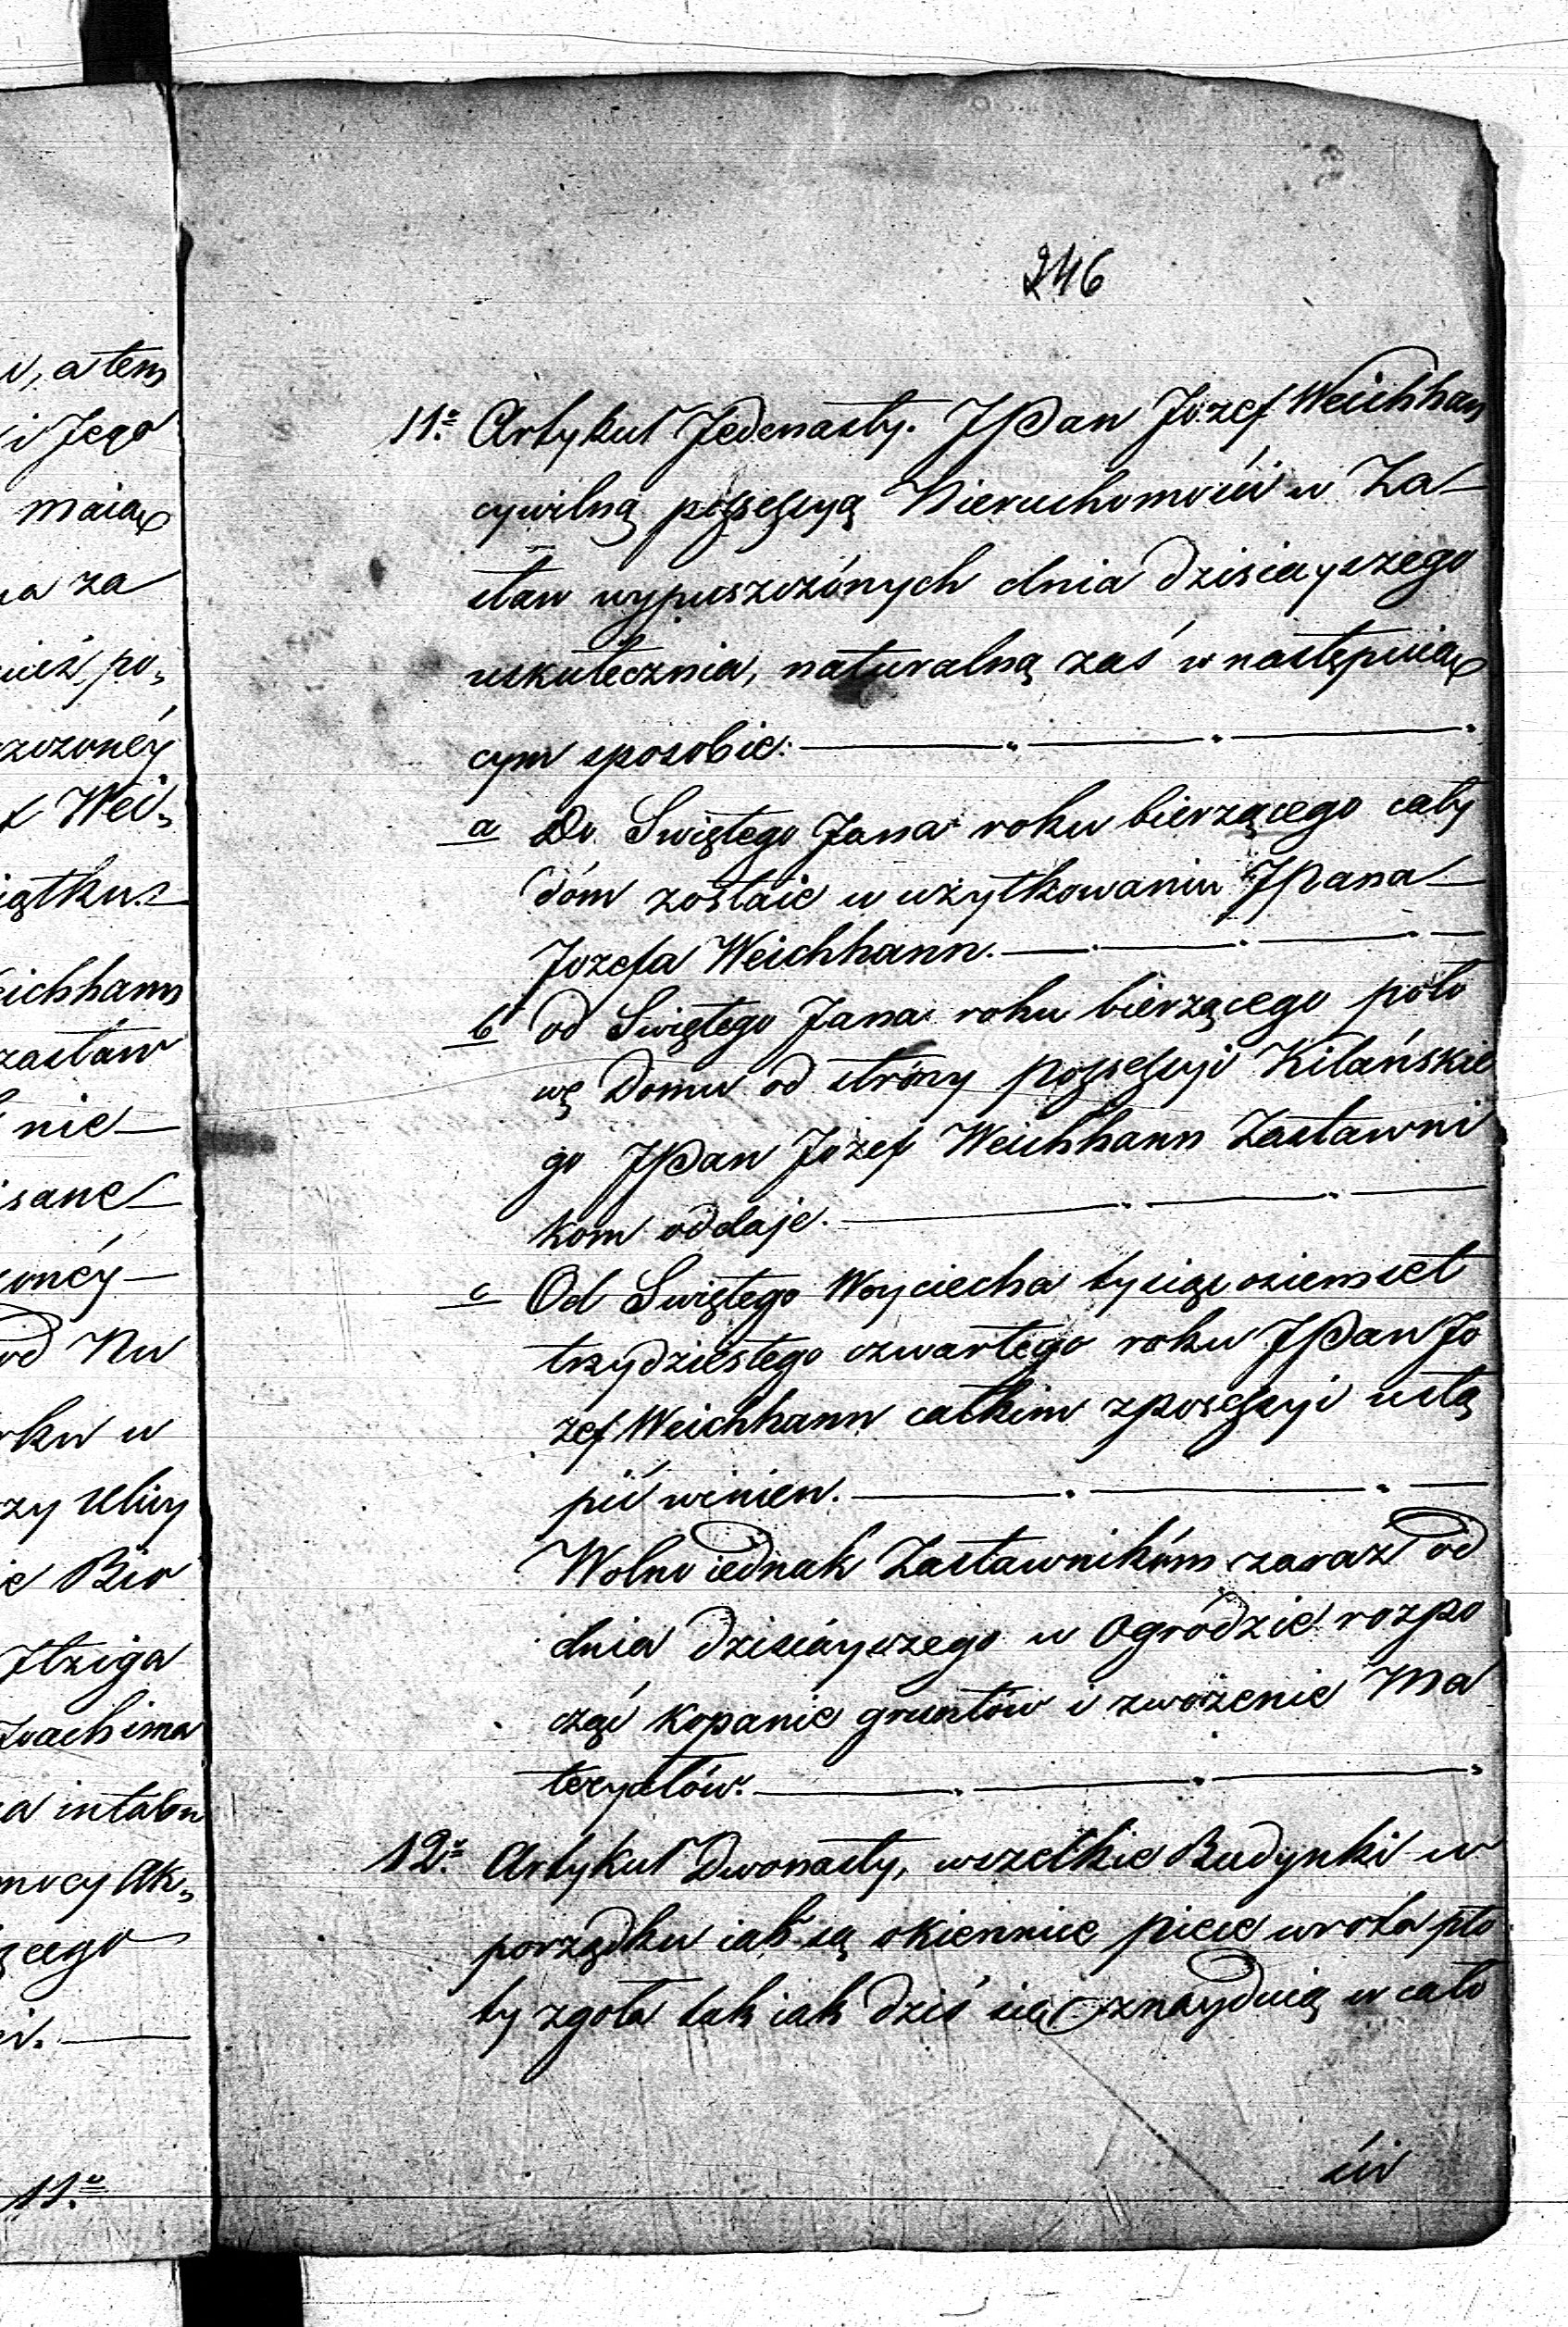 246
11º Artykuł Jedenasty. JPan Jozef Weichhan
cywilną possessyą Nieruchomości w Za—
staw wypuszczónych dnia dzisieyszego
uskutecznia, naturalną zaś w następuią
cym sposobie:
a Do Swiętego Jana roku bierzącego cały
dóm zostaie w użytkowaniu JPana
Jozefa Weichhann.
b od Swiętego Jana roku bierzącego poło
wę Domu od strony possessyi Kilańskie
go JPan Jozef Weichhann Zastawni
kom oddaje.
c Od Swiętego Woyciecha tysiąc osiemset
trzydziestego czwartego roku JPan Jo
zef Weichhann całkim z possessyi ustą
pić winien.
Wolno iednak Zastawnikóm zaraz od
dnia dzisieyszego w Ogrodzie rozpo
cząć kopanie gruntów i zwożenie Ma
teryałów.
12º Artykuł Dwonasty, wszelkie Budynki w
porządku iak są okiennice piece wrota pło
ty zgoła tak iak dziś się znayduią w cało
ści
i, a tem
i Jego
maią
na za
nież po,
szczonéy
f Wei,
iątku
eichhann
zastaw
nie—
isane
zonéy—
od Nu
rku w
zy Ulicy
ie Bro
Itziga
Joachima
a intabu
mocy Ak,
ącego
i.
11º